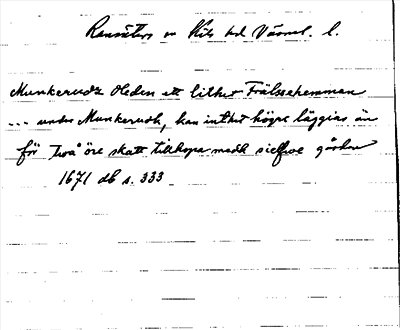 Ransäters sn Kils hd Värml. l.
Munkerudz Öleden ett lithet Frälssehemman
... under Munkerudh, kan inthet högre läggias än
för Twå öre skatt tillhopa medh sielfwe gården
1671 db s. 333